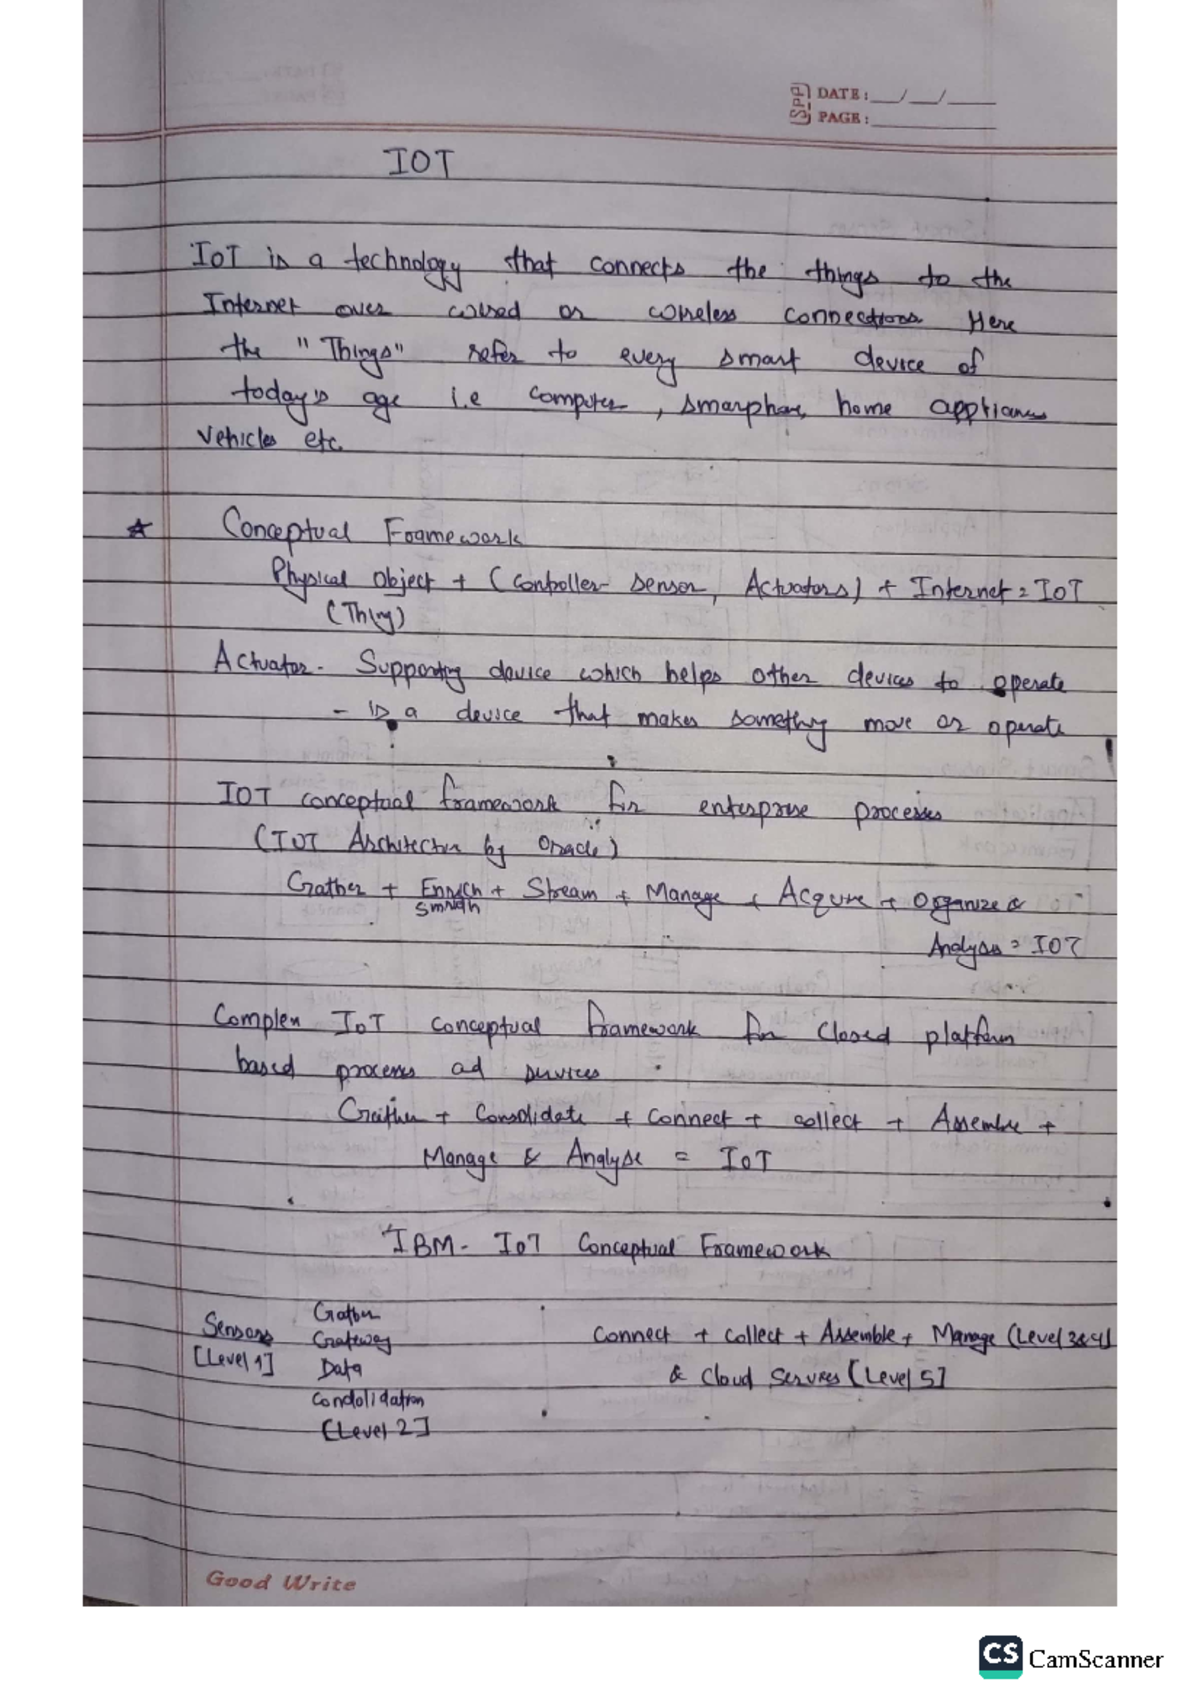 SPP DATE: __/__/____
PAGE: ________
IOT
IoT is a technology that connects the things to the
Internet over wired or wireless connections Here
the "Things" refer to every smart device of
today's age i.e computer, smarphone, home appliances
Vehicles etc.
☆ Conceptual Framework
Physical Object + (Controller sensor, Actuators) + Internet = IoT
(Thing)
Actuator - Supporting device which helps other devices to operate
- is a device that makes something move or operate
IOT conceptual framework for enterprise processes
(IOT Architecture by Oracle)
Gather + Enrich + Stream + Manage + Acqure + Organize &
Analysis = IOT
Complex IoT conceptual framework for Closed platform
based process ad services
Gather + Consolidate + Connect + collect + Assemble +
Manage & Analyse = IOT
IBM - IoT Conceptual Framework
Sensors
[Level 1]
Gather
Gateway
Data
Condolidation
[Level 2]
Connect + Collect + Assemble + Manage (Level 3&4)
& Cloud Servies [Level 5]
Good Write
CS CamScanner